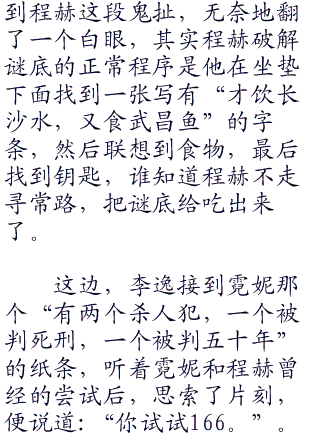 到程赫这段鬼扯，无奈地翻
了一个白眼，其实程赫破解
谜底的正常程序是他在坐垫
下面找到一张写有“才饮长
沙水，又食武昌鱼”的字
条，然后联想到食物，最后
找到钥匙，谁知道程赫不走
寻常路，把谜底给吃出来
了。
这边，李逸接到霓妮那
个“有两个杀人犯，一个被
判死刑，一个被判五十年”
的纸条，听着霓妮和程赫曾
经的尝试后，思索了片刻，
便说道：“你试试166。”。